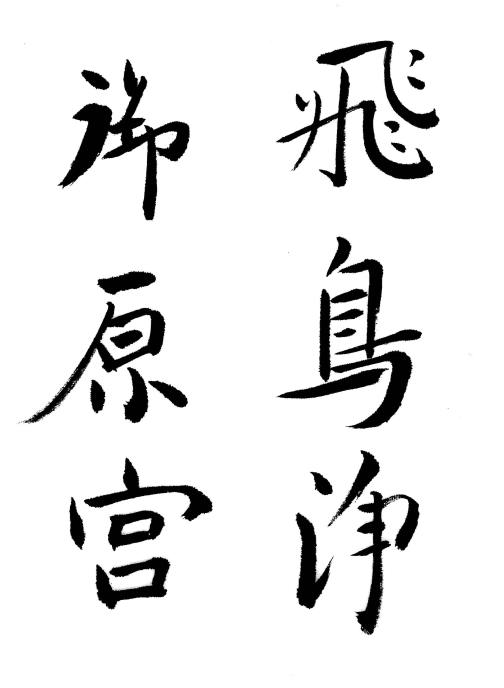 飛鳥浄
御原宮